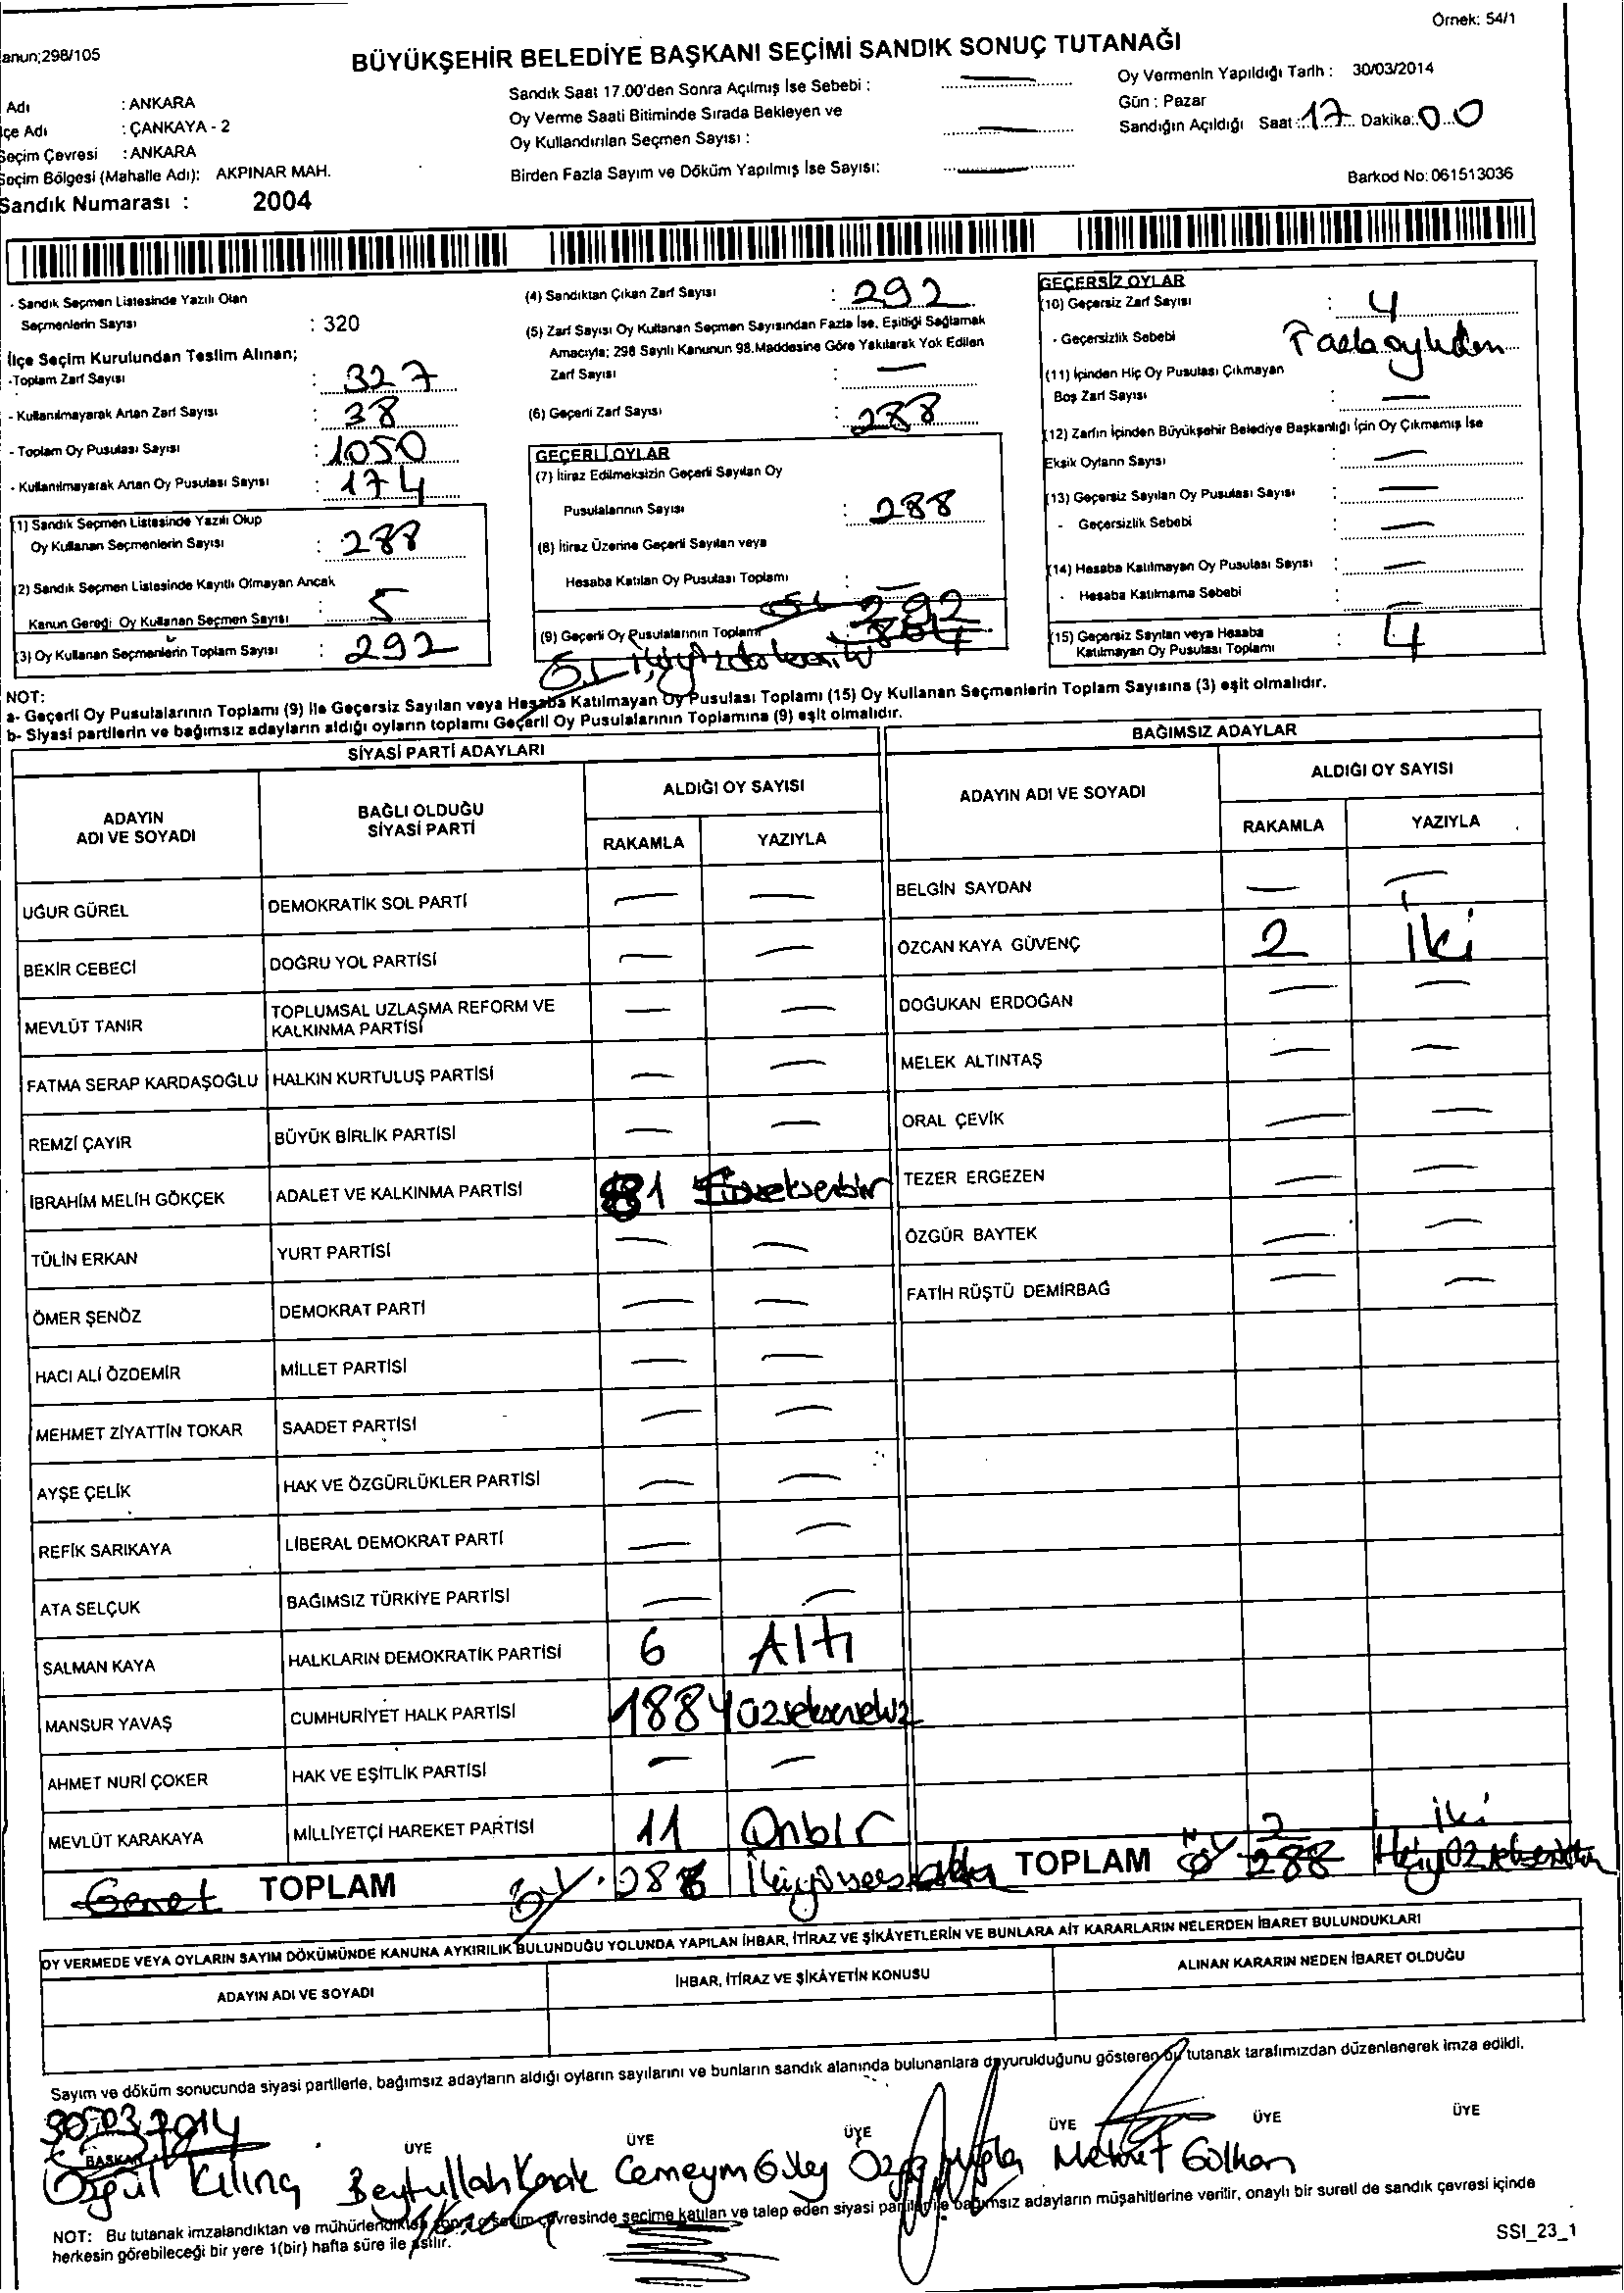 Örnek: 54/1
anun;298/105
BÜYÜKŞEHİR BELEDİYE BAŞKANI SEÇİMİ SANDIK SONUÇ TUTANAĞI
Adı : ANKARA
çe Adı : ÇANKAYA - 2
Seçim Çevresi : ANKARA
Seçim Bölgesi (Mahalle Adı): AKPINAR MAH.
Sandık Numarası : 2004
Sandık Saat 17.00'den Sonra Açılmış İse Sebebi :
Oy Verme Saati Bitiminde Sırada Bekleyen ve
Oy Kullandırılan Seçmen Sayısı :
Birden Fazla Sayım ve Döküm Yapılmış İse Sayısı:
Oy Vermenin Yapıldığı Tarih : 30/03/2014
Gün : Pazar
Sandığın Açıldığı Saat : 17 Dakika: 00
Barkod No: 061513036
- Sandık Seçmen Listesinde Yazılı Olan
Seçmenlerin Sayısı : 320
İlçe Seçim Kurulundan Teslim Alınan;
-Toplam Zarf Sayısı : 327
- Kullanılmayarak Artan Zarf Sayısı : 38
- Toplam Oy Pusulası Sayısı : 1050
- Kullanılmayarak Artan Oy Pusulası Sayısı : 174
(1) Sandık Seçmen Listesinde Yazılı Olup
Oy Kullanan Seçmenlerin Sayısı : 288
(2) Sandık Seçmen Listesinde Kayıtlı Olmayan Ancak
Kanun Gereği Oy Kullanan Seçmen Sayısı : 5
(3) Oy Kullanan Seçmenlerin Toplam Sayısı : 292
(4) Sandıktan Çıkan Zarf Sayısı : 292
(5) Zarf Sayısı Oy Kullanan Seçmen Sayısından Fazla İse, Eşitliği Sağlamak
Amacıyla; 298 Sayılı Kanunun 98.Maddesine Göre Yakılarak Yok Edilen
Zarf Sayısı : —
(6) Geçerli Zarf Sayısı : 288
GEÇERLİ OYLAR
(7) İtiraz Edilmeksizin Geçerli Sayılan Oy
Pusulalarının Sayısı : 288
(8) İtiraz Üzerine Geçerli Sayılan veya
Hesaba Katılan Oy Pusulası Toplamı : —
(9) Geçerli Oy Pusulalarının Toplamı 292
GEÇERSİZ OYLAR
(10) Geçersiz Zarf Sayısı : 4
- Geçersizlik Sebebi Fazla oylden
(11) İçinden Hiç Oy Pusulası Çıkmayan
Boş Zarf Sayısı : —
(12) Zarfın İçinden Büyükşehir Belediye Başkanlığı İçin Oy Çıkmamış İse
Eksik Oyların Sayısı : —
(13) Geçersiz Sayılan Oy Pusulası Sayısı : —
- Geçersizlik Sebebi : —
(14) Hesaba Katılmayan Oy Pusulası Sayısı : —
- Hesaba Katılmama Sebebi : —
(15) Geçersiz Sayılan veya Hesaba
Katılmayan Oy Pusulası Toplamı : 4
NOT:
a- Geçerli Oy Pusulalarının Toplamı (9) ile Geçersiz Sayılan veya Hesaba Katılmayan Oy Pusulası Toplamı (15) Oy Kullanan Seçmenlerin Toplam Sayısına (3) eşit olmalıdır.
b- Siyasi partilerin ve bağımsız adayların aldığı oyların toplamı Geçerli Oy Pusulalarının Toplamına (9) eşit olmalıdır.
SİYASİ PARTİ ADAYLARI
ADAYIN ADI VE SOYADI
BAĞLI OLDUĞU SİYASİ PARTİ
ALDIĞI OY SAYISI
RAKAMLA YAZIYLA
UĞUR GÜREL DEMOKRATİK SOL PARTİ — —
BEKİR CEBECİ DOĞRU YOL PARTİSİ — —
MEVLÜT TANIR TOPLUMSAL UZLAŞMA REFORM VE KALKINMA PARTİSİ — —
FATMA SERAP KARDAŞOĞLU HALKIN KURTULUŞ PARTİSİ — —
REMZİ ÇAYIR BÜYÜK BİRLİK PARTİSİ — —
İBRAHİM MELİH GÖKÇEK ADALET VE KALKINMA PARTİSİ 81
TÜLİN ERKAN YURT PARTİSİ — —
ÖMER ŞENÖZ DEMOKRAT PARTİ — —
HACI ALİ ÖZDEMİR MİLLET PARTİSİ — —
MEHMET ZİYATTİN TOKAR SAADET PARTİSİ — —
AYŞE ÇELİK HAK VE ÖZGÜRLÜKLER PARTİSİ — —
REFİK SARIKAYA LİBERAL DEMOKRAT PARTİ — —
ATA SELÇUK BAĞIMSIZ TÜRKİYE PARTİSİ — —
SALMAN KAYA HALKLARIN DEMOKRATİK PARTİSİ 6 Altı
MANSUR YAVAŞ CUMHURİYET HALK PARTİSİ 188 Yüzseksensekiz
AHMET NURİ ÇOKER HAK VE EŞİTLİK PARTİSİ — —
MEVLÜT KARAKAYA MİLLİYETÇİ HAREKET PARTİSİ 11 Onbir
Genel TOPLAM 286
BAĞIMSIZ ADAYLAR
ADAYIN ADI VE SOYADI
ALDIĞI OY SAYISI
RAKAMLA YAZIYLA
BELGİN SAYDAN — —
ÖZCAN KAYA GÜVENÇ 2 iki
DOĞUKAN ERDOĞAN — —
MELEK ALTINTAŞ — —
ORAL ÇEVİK — —
TEZER ERGEZEN — —
ÖZGÜR BAYTEK — —
FATİH RÜŞTÜ DEMİRBAĞ — —
TOPLAM 2 iki
288
OY VERMEDE VEYA OYLARIN SAYIM DÖKÜMÜNDE KANUNA AYKIRILIK BULUNDUĞU YOLUNDA YAPILAN İHBAR, İTİRAZ VE ŞİKÂYETLERİN VE BUNLARA AİT KARARLARIN NELERDEN İBARET BULUNDUKLARI
ADAYIN ADI VE SOYADI
İHBAR, İTİRAZ VE ŞİKÂYETİN KONUSU
ALINAN KARARIN NEDEN İBARET OLDUĞU
Sayım ve döküm sonucunda siyasi partilerle, bağımsız adayların aldığı oyların sayılarını ve bunların sandık alanında bulunanlara duyurulduğunu gösteren bu tutanak tarafımızdan düzenlenerek imza edildi.
30.03.2014
BAŞKAN ÜYE ÜYE ÜYE ÜYE ÜYE ÜYE
Özgül Kılınç Beytullah Cemeym Mehmet Gülhan
NOT: Bu tutanak imzalandıktan ve mühürlendikten sonra o seçim çevresinde seçime katılan ve talep eden siyasi partilerle bağımsız adayların müşahitlerine verilir, onaylı bir sureti de sandık çevresi içinde
herkesin görebileceği bir yere 1(bir) hafta süre ile asılır.
SSI_23_1